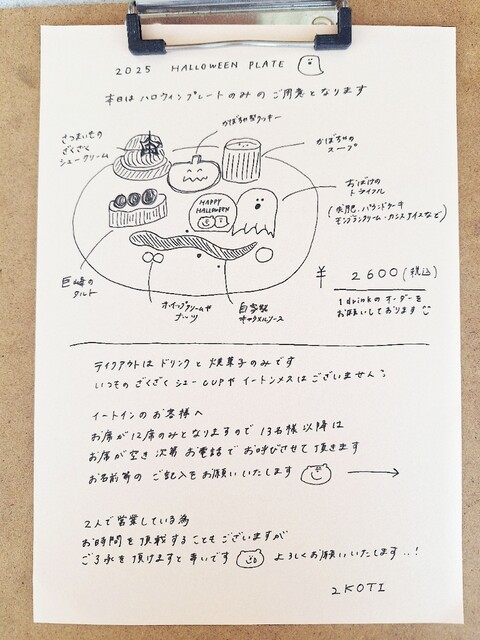 2025 HALLOWEEN PLATE
本日は ハロウィンプレートのみの ご用意となります
かぼちゃ型クッキー
さつまいもの
ざくざく
シュークリーム
かぼちゃの
スープ
おばけの
トライフル
(求肥、パウンドケーキ
モンブランクリーム・カシスアイスなど)
HAPPY
HALLOWEEN
巨峰の
タルト
ホイップクリームや
ナッツ
自家製
キャラメルソース
¥ 2600(税込)
1drinkのオーダーを
お願いしております
テイクアウトは ドリンクと 焼菓子のみです
いつもの ざくざく シューcupや イートンメスはございません
イートインの お客様へ
お席が12席のみとなりますので 13名様以降は
お席が空き次第 お電話で お呼びさせて頂きます
お名前等の ご記入を お願いいたします
2人で営業している為
お時間を 頂戴することも ございますが
ご了承を頂けますと幸いです よろしくお願いいたします..!
2KOTI